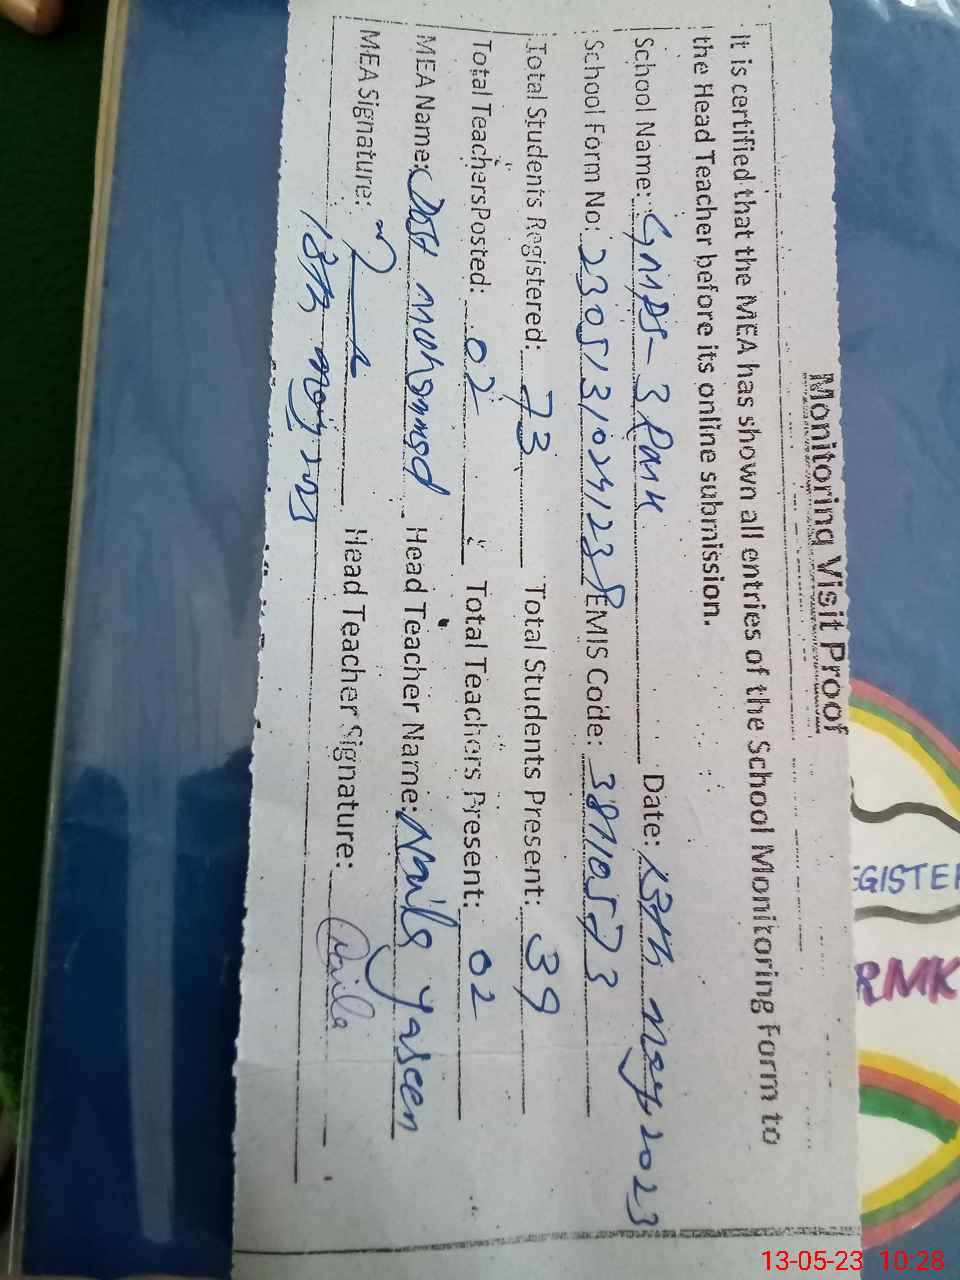 Monitoring Visit Proof
It is certified that the MEA has shown all entries of the School Monitoring Form to
the Head Teacher before its online submission.
School Name: GMPS- 3 Date: 13th May 2023
School Form No: EMIS Code: 38710573
Total Students Registered: 73 Total Students Present: 39
Total TeachersPosted: 02 Total Teachers Present: 02
MEA Name: Dost Mohammad Head Teacher Name: Naila Yaseen
MEA Signature: Head Teacher Signature: Naila
13th May 2023
EGISTER
RMK
13-05-23 10:28